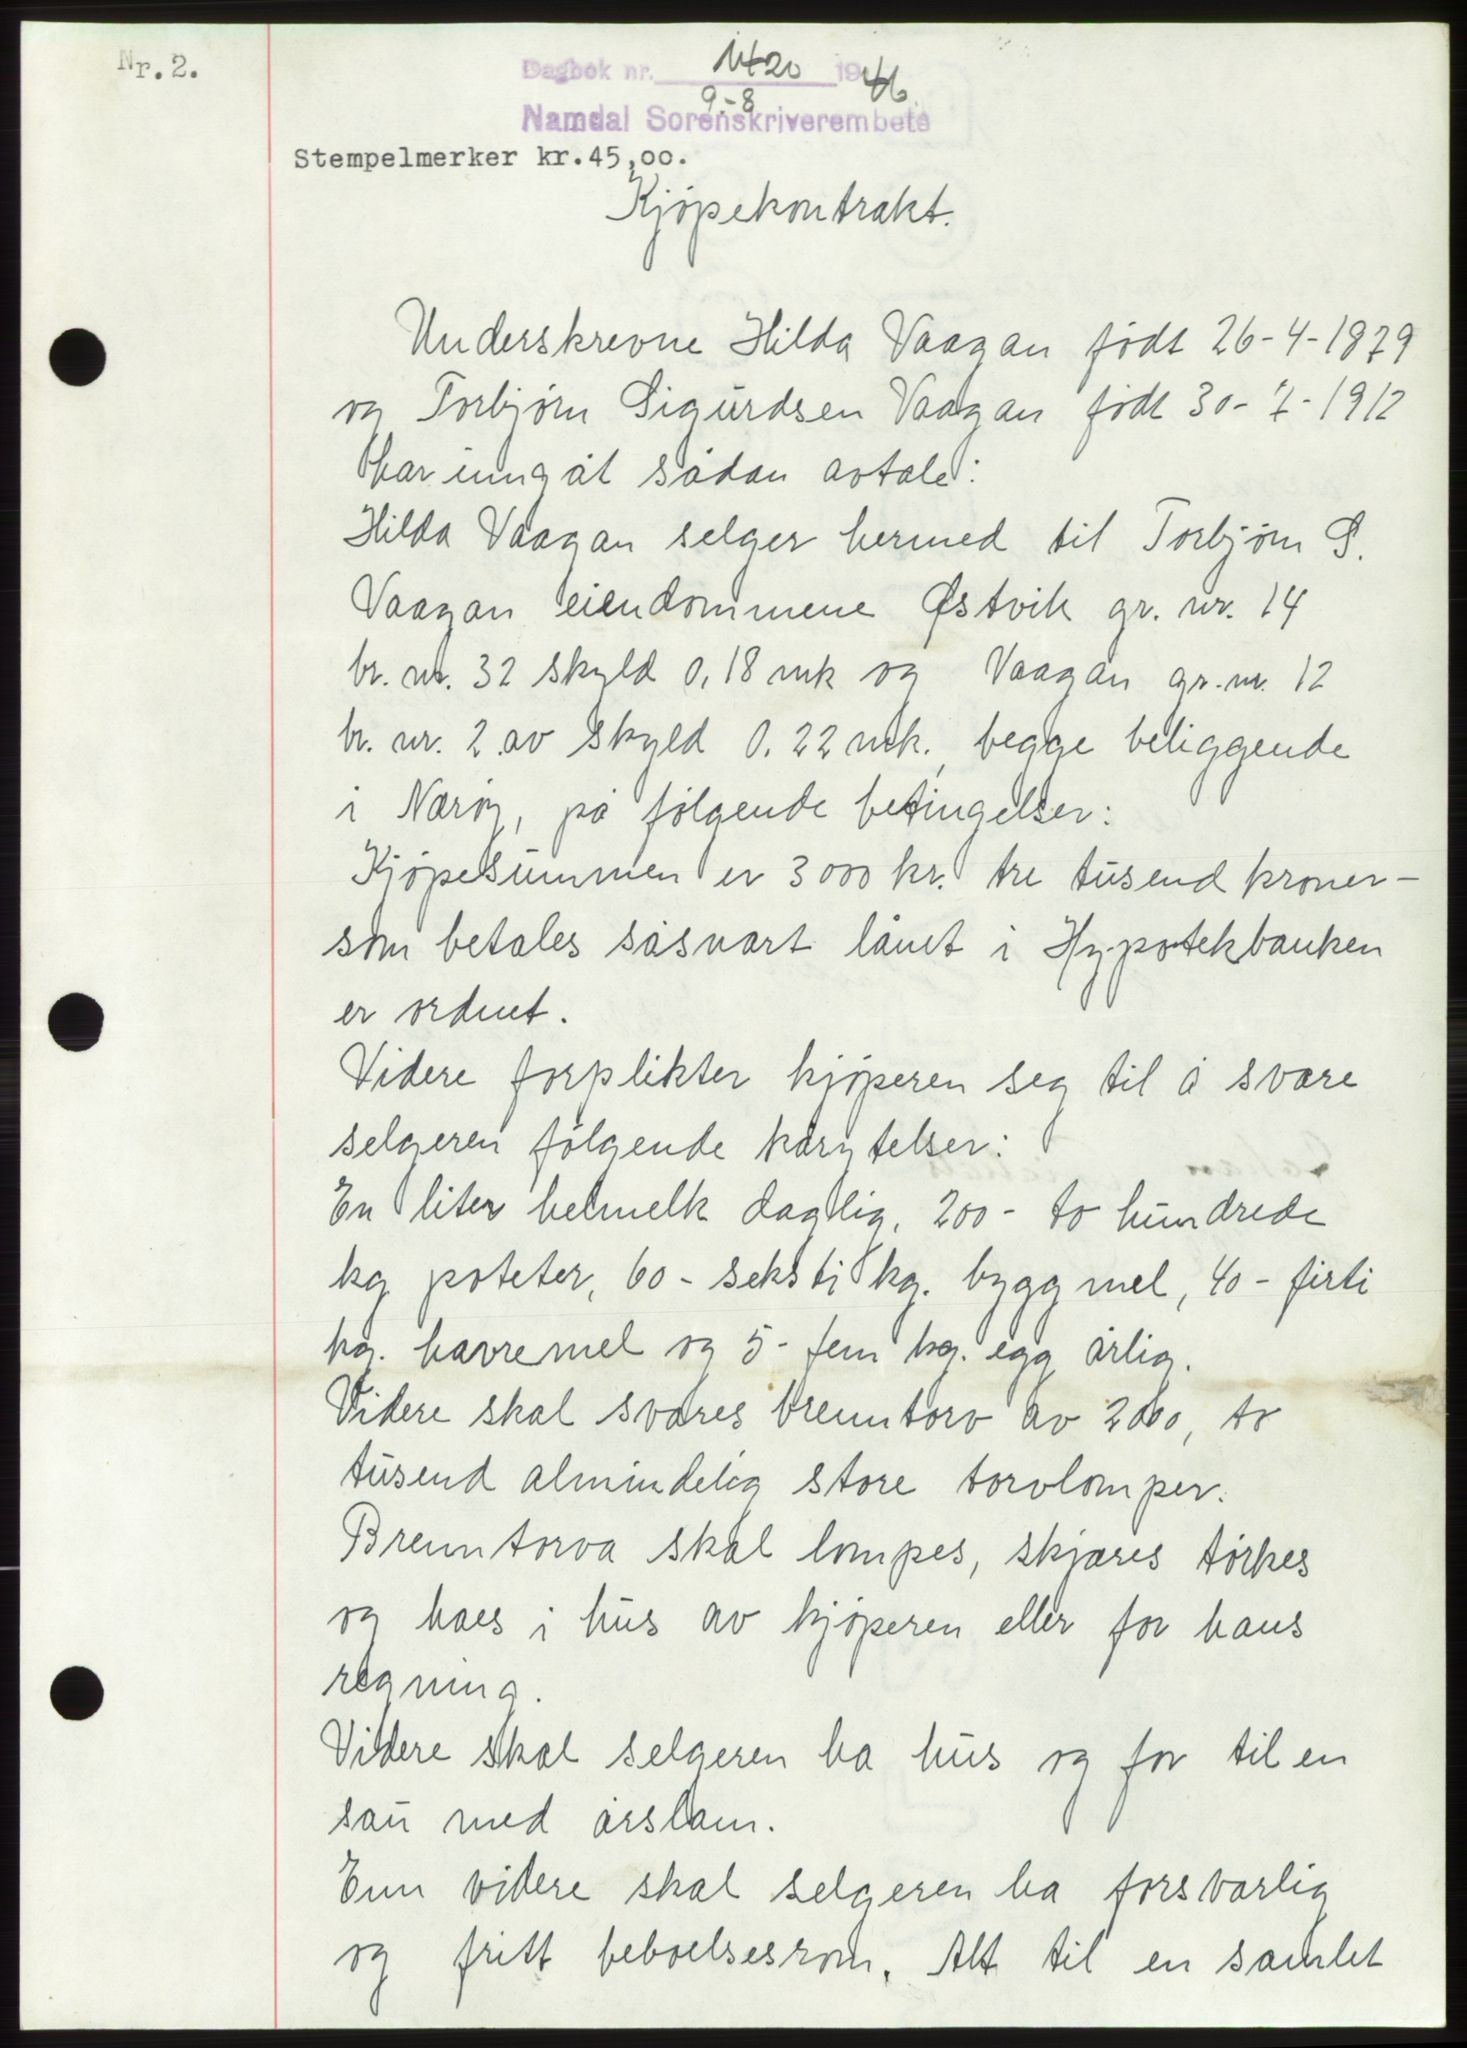 Nr.2.
Dagbok nr. 1420 1946
9.-8
Namdal Sorenskriverembete
Stempelmerker kr.45,00.
Kjøpekontrakt.
Underskrevne Hilda Vaagan født 26-4-1879
og Torbjørn Sigurdsen Vaagan født 30-7-1912
har inngåt sådan avtale:
Hilda Vaagan selger hermed til Torbjørn S.
Vaagan eiendommene Østvik gr. nr. 14
br. nr. 32 skyld 0,18 mk og Vaagan gr. nr. 12
br. nr. 2 av skyld 0.22 mk., begge beliggende
i Nærøy, på følgende betingelser:
Kjøpesummen er 3000 kr. tre tusend kroner-
som betales såsnart lånet i Hypotekbanken
er ordnet.
Videre forplikter kjøperen seg til å svare
selgeren følgende kårytelser:
En liter helmelk daglig, 200- to hundrede
kg poteter, 60- seksti kg. byggmel, 40- firti
kg. havremel og 5- fem kg. egg årlig.
Videre skal svares brenntorv av 2000, to
tusend almindelig store torvlomper.
Brenntorva skal lompes, skjæres tørkes
og haes i hus av kjøperen eller for hans
regning.
Videre skal selgeren ha hus og for til en
sau med årslam.
Enn videre skal selgeren ha forsvarlig
og fritt beboelsesrom. Alt til en samlet